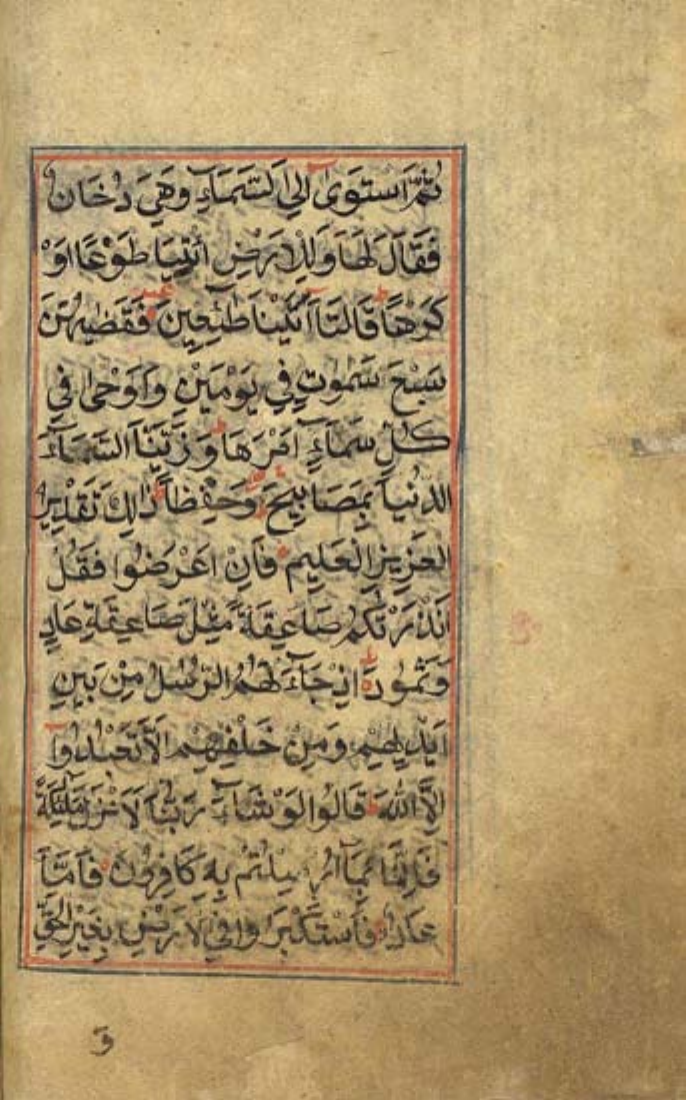 ثُمَّ اسْتَوَىٰ اِلَى السَّمَآءِ وَهِيَ دُخَانٌ
فَقَالَ لَهَا وَلِلْاَرْضِ ائْتِيَا طَوْعًا اَوْ
كَرْهًا قَالَتَآ اَتَيْنَا طَآئِعِينَ فَقَضٰيهُنَّ
سَبْعَ سَمٰوٰتٍ فِي يَوْمَيْنِ وَاَوْحٰى فِي
كُلِّ سَمَآءٍ اَمْرَهَا وَزَيَّنَّا السَّمَآءَ
الدُّنْيَا بِمَصَابِيحَ وَحِفْظًا ذَالِكَ تَقْدِيرُ
الْعَزِيزِ الْعَلِيمِ فَاِنْ اَعْرَضُوا فَقُلْ
اَنْذَرْتُكُمْ صَاعِقَةً مِثْلَ صَاعِقَةِ عَادٍ
وَثَمُودَ اِذْ جَآءَتْهُمُ الرُّسُلُ مِنْ بَيْنِ
اَيْدِيهِمْ وَمِنْ خَلْفِهِمْ اَلَّا تَعْبُدُوٓا
اِلَّا اللّٰهَ قَالُوا لَوْ شَآءَ رَبُّنَا لَاَنْزَلَ مَلٰٓئِكَةً
فَاِنَّا بِمَآ اُرْسِلْتُمْ بِهِ كَافِرُونَ فَاَمَّا
عَادٌ فَاسْتَكْبَرُوا فِي الْاَرْضِ بِغَيْرِ الْحَقِّ
وَ